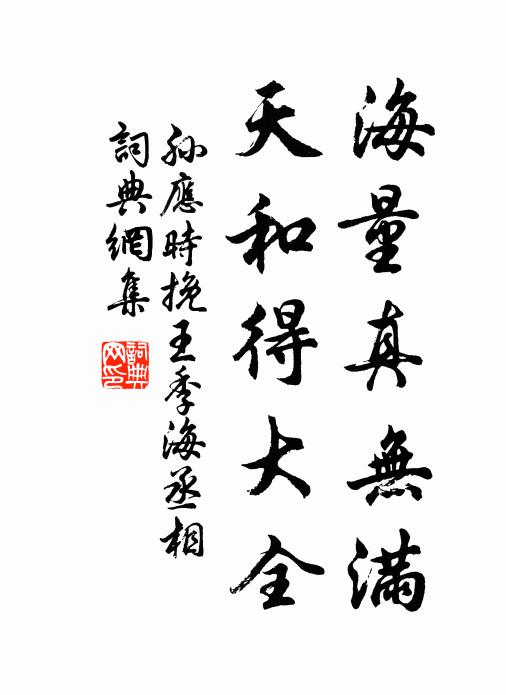 海量真無滿
天和得大全
孫應時挽王季海丞相
詞典網集
詞典
网印